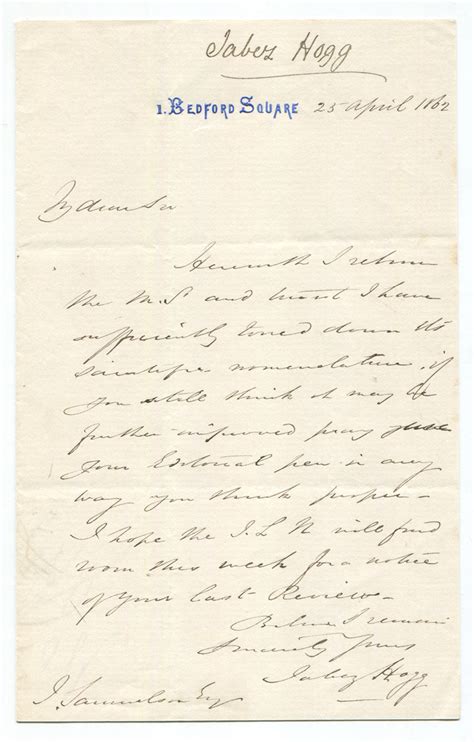 Jabez Hogg
1. BEDFORD SQUARE 25 April 1862
My dear Sir
Herewith I return
the M.S. and trust I have
sufficiently toned down its
scientific nomenclature, if
you still think it may be
further improved pray use
your Editorial pen in any
way you think proper—
I hope the I.L.N will find
room this week for a notice
of your last Review—
Believe I remain
Sincerely Yours
Jabez Hogg
J. Samuelson Esq